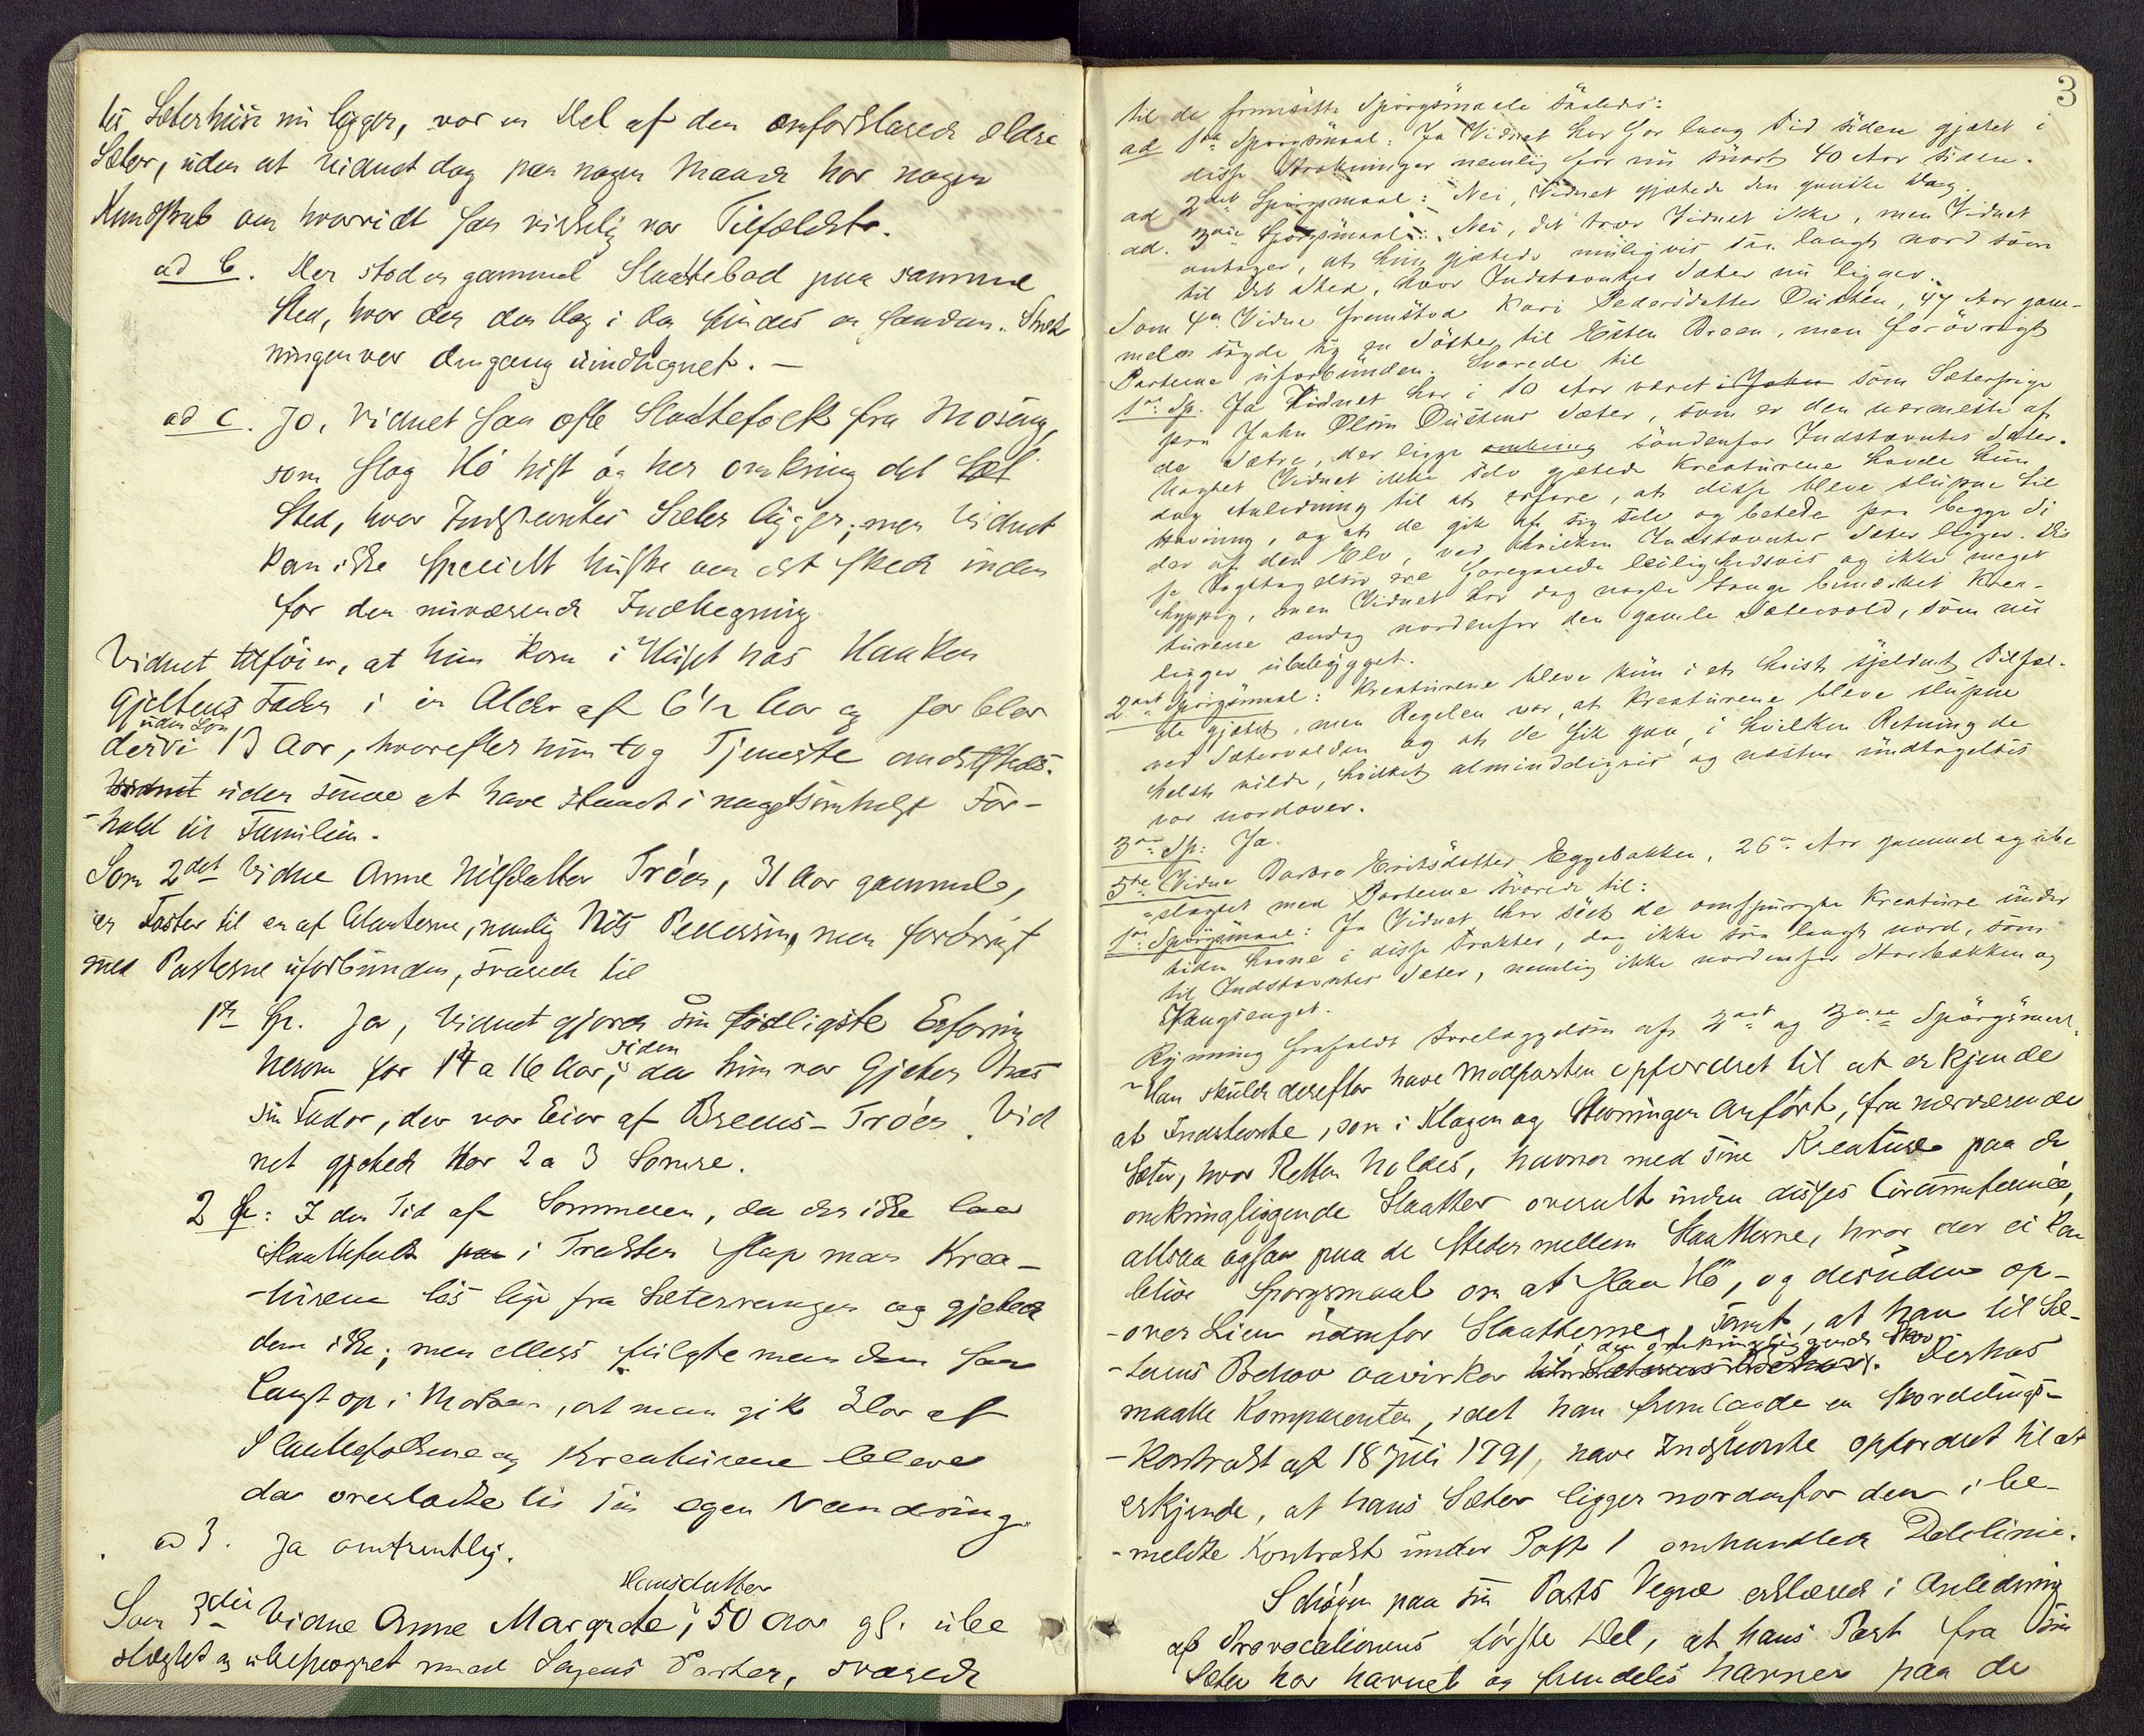 tis Sæterhuse nu ligger, var en Del af den omforklarede ældre
Sæter, uden at vidnet dog paa nogen Maade har nogen
Kundskab om hvorvidt saa virkelig var Tilfældet.
ad b. Der stod en gammel Slaattebod paa samme
Sted, hvor der den Dag i Dag findes en saadan. Stræk
ningen var dengang uindhegnet. —
ad c. Jo, vidnet saa ofte Slaattefolk fra Moseng,
som slog Hö hist og her omkring det
Sted, hvor Indstevntes Sæter ligger; men vidnet
kan ikke specielt huske om det skede inden
for den nuværende Indhegning.
Vidnet tilföier, at hun kom i Huset hos Haaken
Gjeltens Fader i en Alder af 6½ Aar og forblev
uden Lön
der i 13 Aar, hvorefter hun tog Tjeneste andetsteds.
vidnet uden senere at have staaet i nogetsomhelst For-
-hold til Familien.
Som 2det Vidne Anne Nilsdatter Tröen, 31 Aar gammel,
er Faster til en af Citanterne, nemlig Nils Pedersen, men forövrigt
med Parterne uforbunden, svarede til
1ste Sp. Ja, Vidnet gjorde sin tydeligste Erfaring
siden
herom for 14 a 16 Aar, da hun var Gjeter hos
sin Fader, der var Eier af Breens-Tröen. Vid
net gjetede der 2 a 3 Somre.
2 Sp: I den Tid af Sommeren, da der ikke laa
Slaattefolk paa i Trakten slap man Krea-
-turene lös lige fra Sætervangen og gjetede
dem ikke; men ellers fulgte man dem saa
langt op i Marken, at man gik klar af
Slaattefolkene og Kreaturene bleve
da overladte til sin egen Vandring.
ad 3. Ja omtrentlig.
Hansdatter
Som 3die Vidne Anne Margrete, 50 Aar gl. ube
slægtet og ubesvogret med Sagens Parter, svarede
3
til de fremsatte Spörgsmaale saaledes:
ad 1ste Spörgsmaal: Ja Vidnet har for lang Tid siden gjætet i
disse Strækninger nemlig for nu snart 40 Aar siden.
ad 2det Spörgsmaal: Nei, Vidnet gjætede den ganske Dag.
ad. 3die Spörgsmaal: Nei, det tror Vidnet ikke, men Vidnet
antager, at hun gjætede muligvis saa langt nord som
til det Sted, hvor Indstævntes Sæter nu ligger.
Som 4de Vidne fremstod Kari Pedersdatter, 44 Aar gam-
mel sagde sig en Söster til Esten Breen, men forövrigt
Parterne uforbunden. Svarede til
1ste Sp. Ja Vidnet har i 10 Aar været i som Sæterpige
paa John Olsen Sæter, som er den nærmeste af
de Sætre, der ligge omkring söndenfor Indstævntes Sæter.
Uagtet Vidnet ikke selv gjætede Kreaturene havde hun
dog Anledning til at erfare, at disse bleve slupne til
Havning, og at de gik af sig selv og betede paa begge Si
der af den Elv, ved hvilken Indstævntes Sæter ligger. Dis
se Iagttagelser ere foregaaede leilighedsvis og ikke meget
hyppig, men Vidnet har dog nogle Gange bemærket Krea-
turene endog nordenfor den gamle Sætervold, som nu
ligger ubebygget.
2det Spörgsmaal: Kreaturene bleve kun i et höist sjeldent Tilfæl-
de gjætet, men Regelen var, at Kreaturene bleve slupne
ved Sætervolden og at de fik gaa, i hvilken Retning de
helst vilde, hvilket almindeligvis og næsten undtagelses
var nordover.
3die Sp: Ja.
5te Vidne Barbro Eriksdatter Eggebakken, 26 Aar gammel og ube
-slægtet med Parterne svarede til:
1ste Spörgsmaal: Ja Vidnet har seet de omspurgte Kreature under
tiden havne i disse Trakter, dog ikke saa langt nord, som
til Indstævntes Sæter, nemlig ikke nordenfor Storbakken og
Rynning frafaldt Forelæggelsen af 2det og 3die Spörgsmaal.
Han skulde derefter have Modparten opfordret til at erkjende
at Indstevnte, som i Klagen og Stevningen anfört, fra nærværende
Sæter, hvor Retten holdes, havner med sine Kreature paa de
omkringliggende Slaatter overalt inden disses Circumference,
altsaa ogsaa paa de Steder mellem Slaatterne, hvor der ei kan
blive Spörgsmaal om at slaa Hö, og desuden op-
-over Lien udenfor Slaatterne, samt, at han til Sæ-
i den omkringliggende Skov
-terens Behov avirker til Sæterens Behov. Derhos
maatte Komparenten, idet han fremlagde en Skovdelings-
-Kontrakt af 18 Juli 1791, have Indstevnte opfordret til at
erkjende, at hans Sæter ligger nordenfor den i be-
-meldte Kontrakt under Post 1 omhandlede Delelinie.
Schöyen paa sin Parts Vegne erklærede i Anledning
af Provocationens förste Del, at hans Part fra sin
Sæter har havnet og fremdeles havner paa de